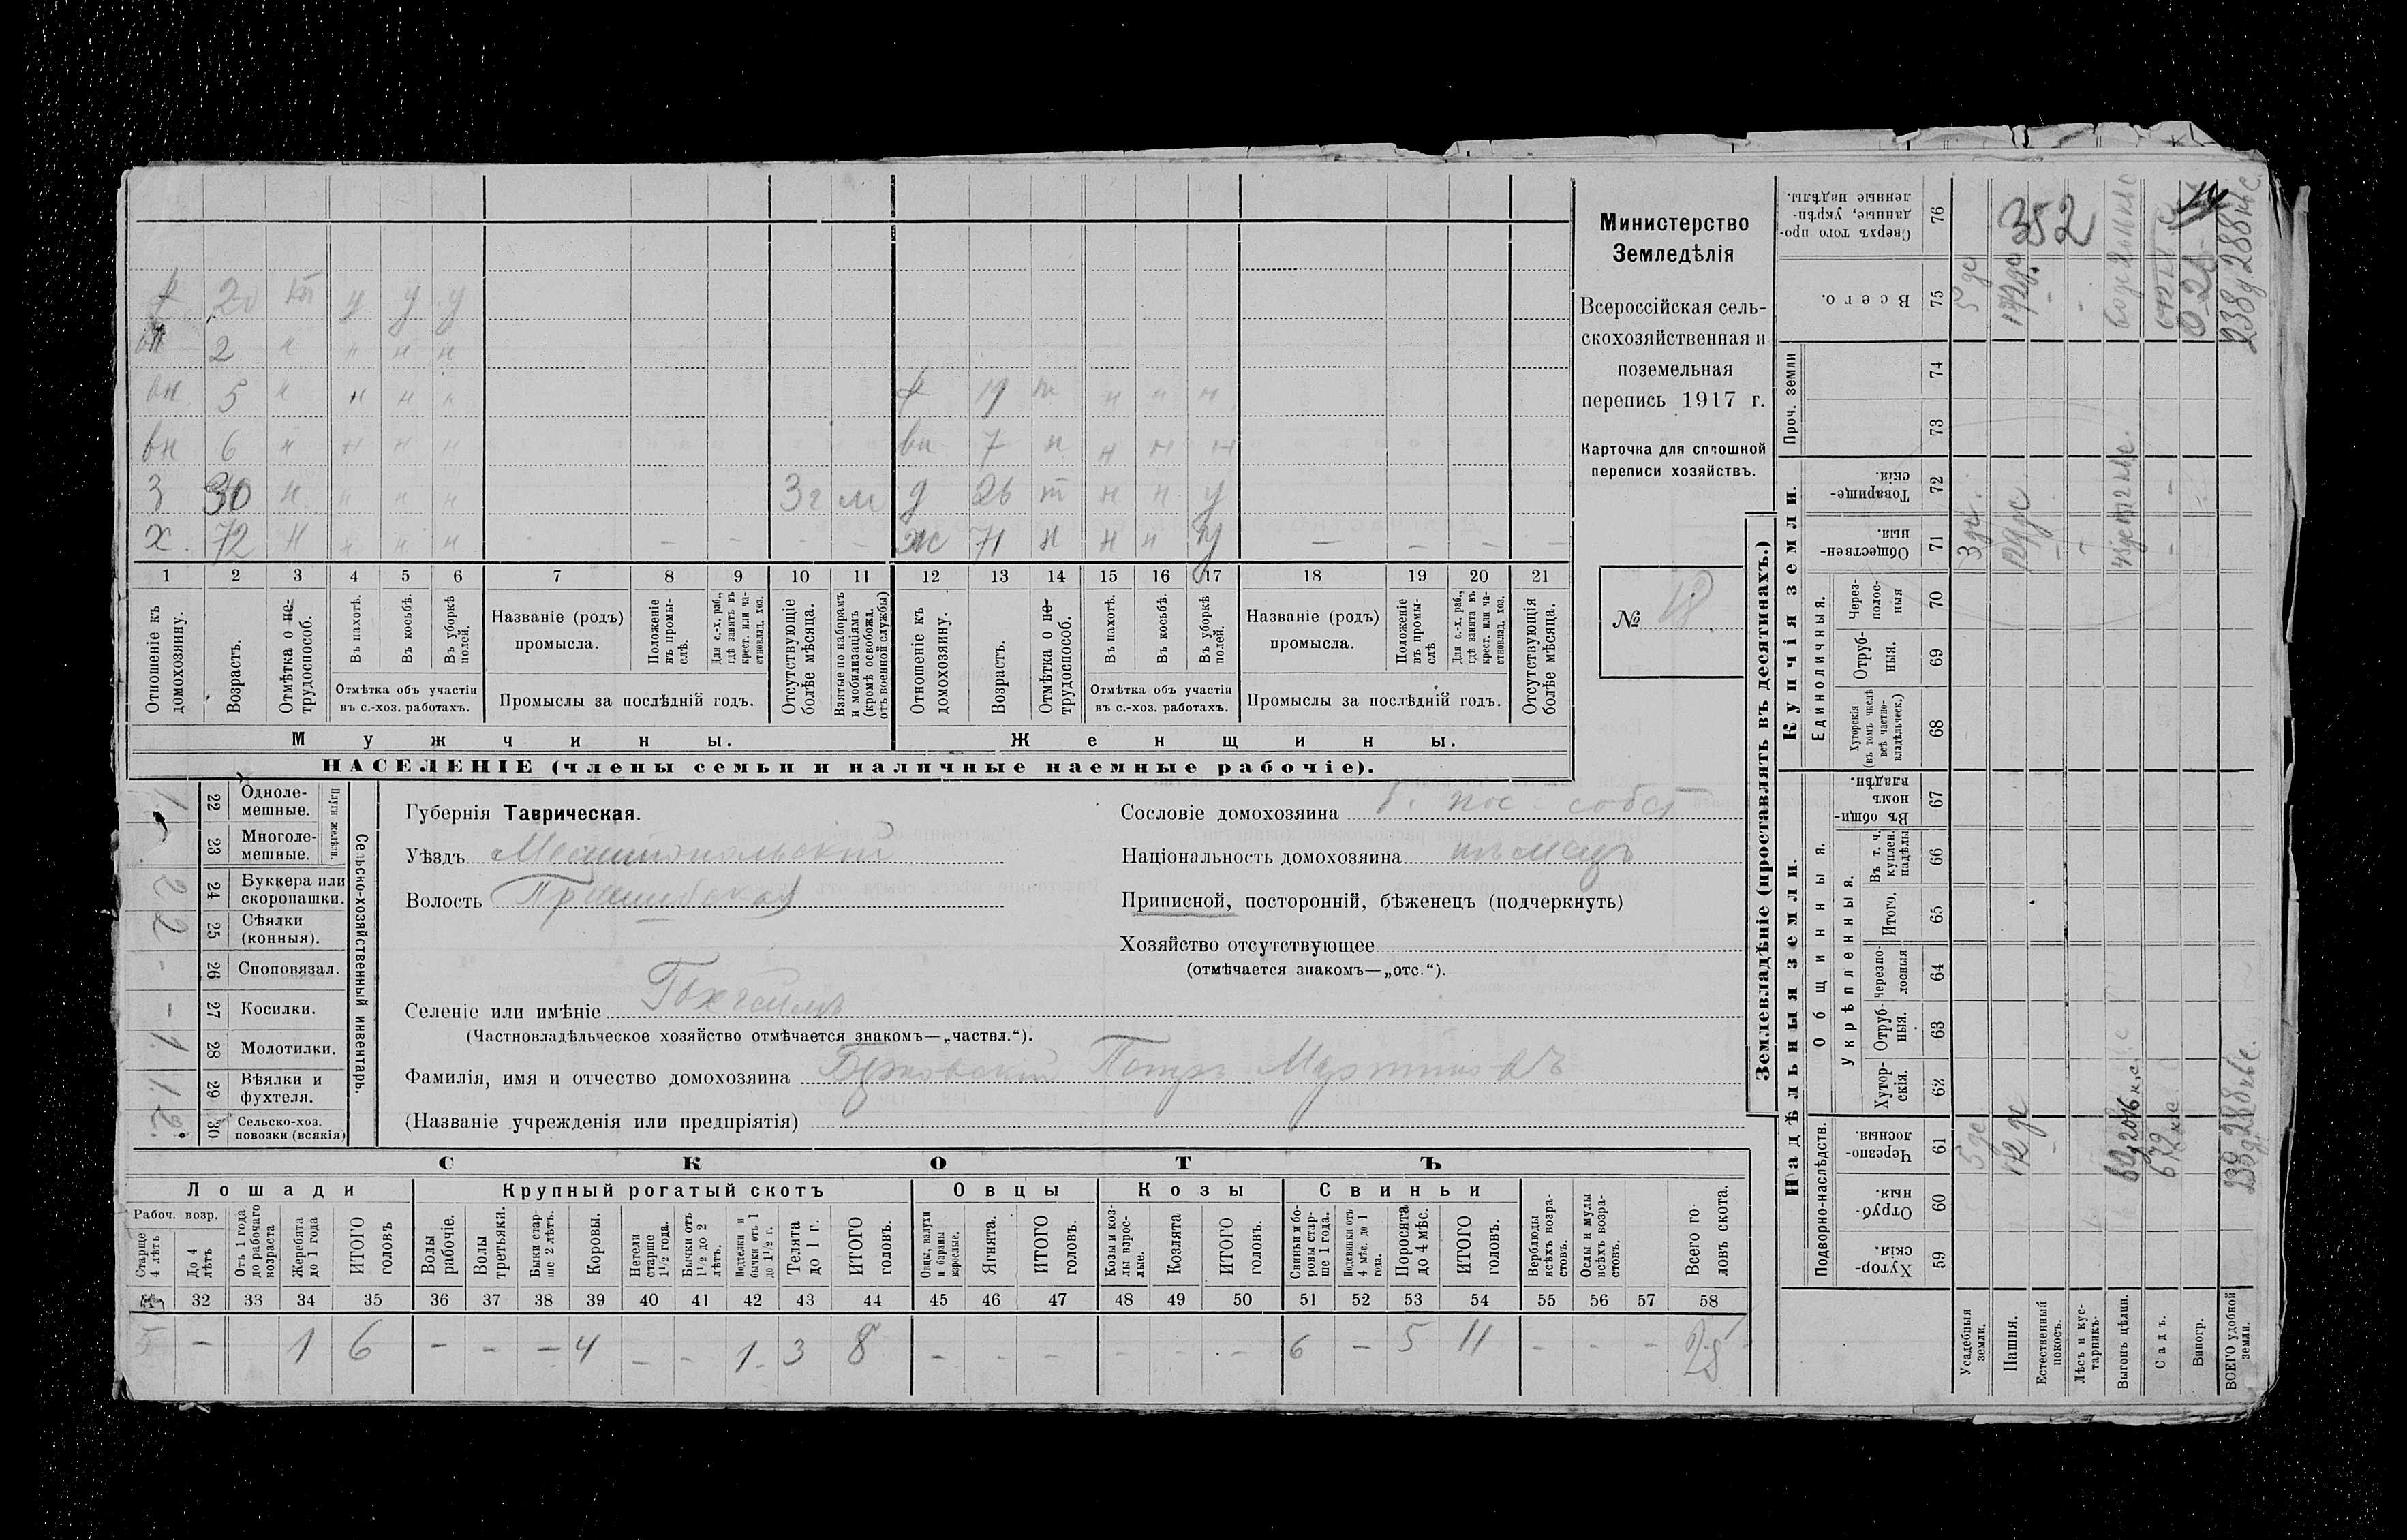 х. 72 н н н н - - - - - ж 71 н н н у - - - - -
з 30 н н н н 3 г м д 26 т н н у
вн 6 н н н н вн 7 н н н н
вн 5 н н н н 19 н н н
вн 2 н н н н
20 у у у
1 2 3 4 5 6 7 8 9 10 11 12 13 14 15 16 17 18 19 20 21
Отношеніе къ домохозяину.
Возрастъ.
Отмѣтка о не-трудоспособ.
Въ пахотѣ.
Въ косьбѣ.
Въ уборкѣ полей.
Отмѣтка объ участіи въ с.-хоз. работахъ.
Названіе (родъ) промысла.
Положеніе въ промыслѣ.
Для с.-х. раб., гдѣ занятъ въ крест. или частновлад. хоз.
Промыслы за послѣдній годъ.
Отсутствующіе болѣе мѣсяца.
Взятые по наборамъ и мобилизаціямъ (кромѣ освобожд. отъ военной службы)
Отношеніе къ домохозяину.
Возрастъ.
Отмѣтка о не-трудоспособ.
Въ пахотѣ.
Въ косьбѣ.
Въ уборкѣ полей.
Отмѣтка объ участіи въ с.-хоз. работахъ.
Названіе (родъ) промысла.
Положеніе въ промыслѣ.
Для с.-х. раб., гдѣ занята въ крест. или частновлад. хоз.
Промыслы за послѣдній годъ.
Отсутствующія болѣе мѣсяца.
Мужчины.
Женщины.
НАСЕЛЕНІЕ (члены семьи и наличные наемные рабочіе).
Министерство
Земледѣлія
Всероссійская сель-
скохозяйственная и
поземельная
перепись 1917 г.
Карточка для сплошной
переписи хозяйствъ.
№ 18
Сельско-хозяйственный инвентарь.
Плуги желѣзн.
22 Одноле-мешные. 1
23 Многоле-мешные.
24 Буккера или скоропашки. 2
25 Сѣялки (конныя). 2
26 Сноповязал. -
27 Косилки. -
28 Молотилки. 1
29 Вѣялки и фухтеля. 1
30 Сельско-хоз. повозки (всякія) 2.
Губернія Таврическая.
Уѣздъ Мелитопольскій
Волость Пришибская
Сословіе домохозяина пос. собст
Національность домохозяина нѣмецъ
Приписной, посторонній, бѣженецъ (подчеркнуть)
Хозяйство отсутствующее
(отмѣчается знакомъ—„отс.“).
Селеніе или имѣніе
(Частновладѣльческое хозяйство отмѣчается знакомъ—„частвл.“).
Фамилія, имя и отчество домохозяина Петръ Мартиновъ
(Названіе учрежденія или предпріятія)
СКОТЪ
Лошади
Крупный рогатый скотъ
Овцы
Козы
Свиньи
Рабоч. возр.
Старше 4 лѣтъ
До 4 лѣтъ
Отъ 1 года до рабочаго возраста
Жеребята до 1 года
ИТОГО головъ
Волы рабочіе.
Волы третьяки.
Быки старше 2 лѣтъ.
Коровы.
Нетели старше 1 1/2 года.
Бычки отъ 1 1/2 до 2 лѣтъ.
Подтелки и бычки отъ 1 до 1 1/2 г.
Телята до 1 г.
ИТОГО головъ.
Овцы, валухи и бараны взрослые.
Ягнята.
ИТОГО головъ.
Козы и козлы взрослые.
Козлята
ИТОГО головъ.
Свиньи и боровы старше 1 года.
Подсвинки отъ 4 мѣс. до 1 года.
Поросята до 4 мѣс.
ИТОГО головъ.
Верблюды всѣхъ возрастовъ.
Ослы и мулы всѣхъ возрастовъ.
Всего головъ скота.
31 32 33 34 35 36 37 38 39 40 41 42 43 44 45 46 47 48 49 50 51 52 53 54 55 56 57 58
5 - 1 6 - - - 4 - - 1 3 8 - - - - - - 6 - 5 11 - - - 25
Землевладѣніе (проставлять въ десятинахъ.)
Надѣльныя земли.
Купчія земли.
Проч. земли
Подворно-наслѣдств.
Общинныя.
Укрѣпленныя.
Единоличныя.
Хуторскія. 59
Отрубныя 60
Черезполосныя. 61
Хуторскія. 62
Отрубныя. 63
Черезполосныя 64
Итого. 65
Въ т. ч. куплен. надѣлы 66
Въ общинномъ владѣн. 67
Хуторскія (въ томъ числѣ всѣ частновладѣльческ.) 68
Отрубныя. 69
Черезполосныя 70
Общественныя. 71
Товарищескія. 72
73
74
Всего. 75
Сверхъ того проданные, укрѣпленные надѣлы. 76
352
Усадебныя земли.
Пашня. 129 дс 172 дс
Естественный покосъ.
Лѣсъ и кустарникъ.
Выгонъ цѣлин.
Садъ. 672
Виногр.
ВСЕГО удобной земли.